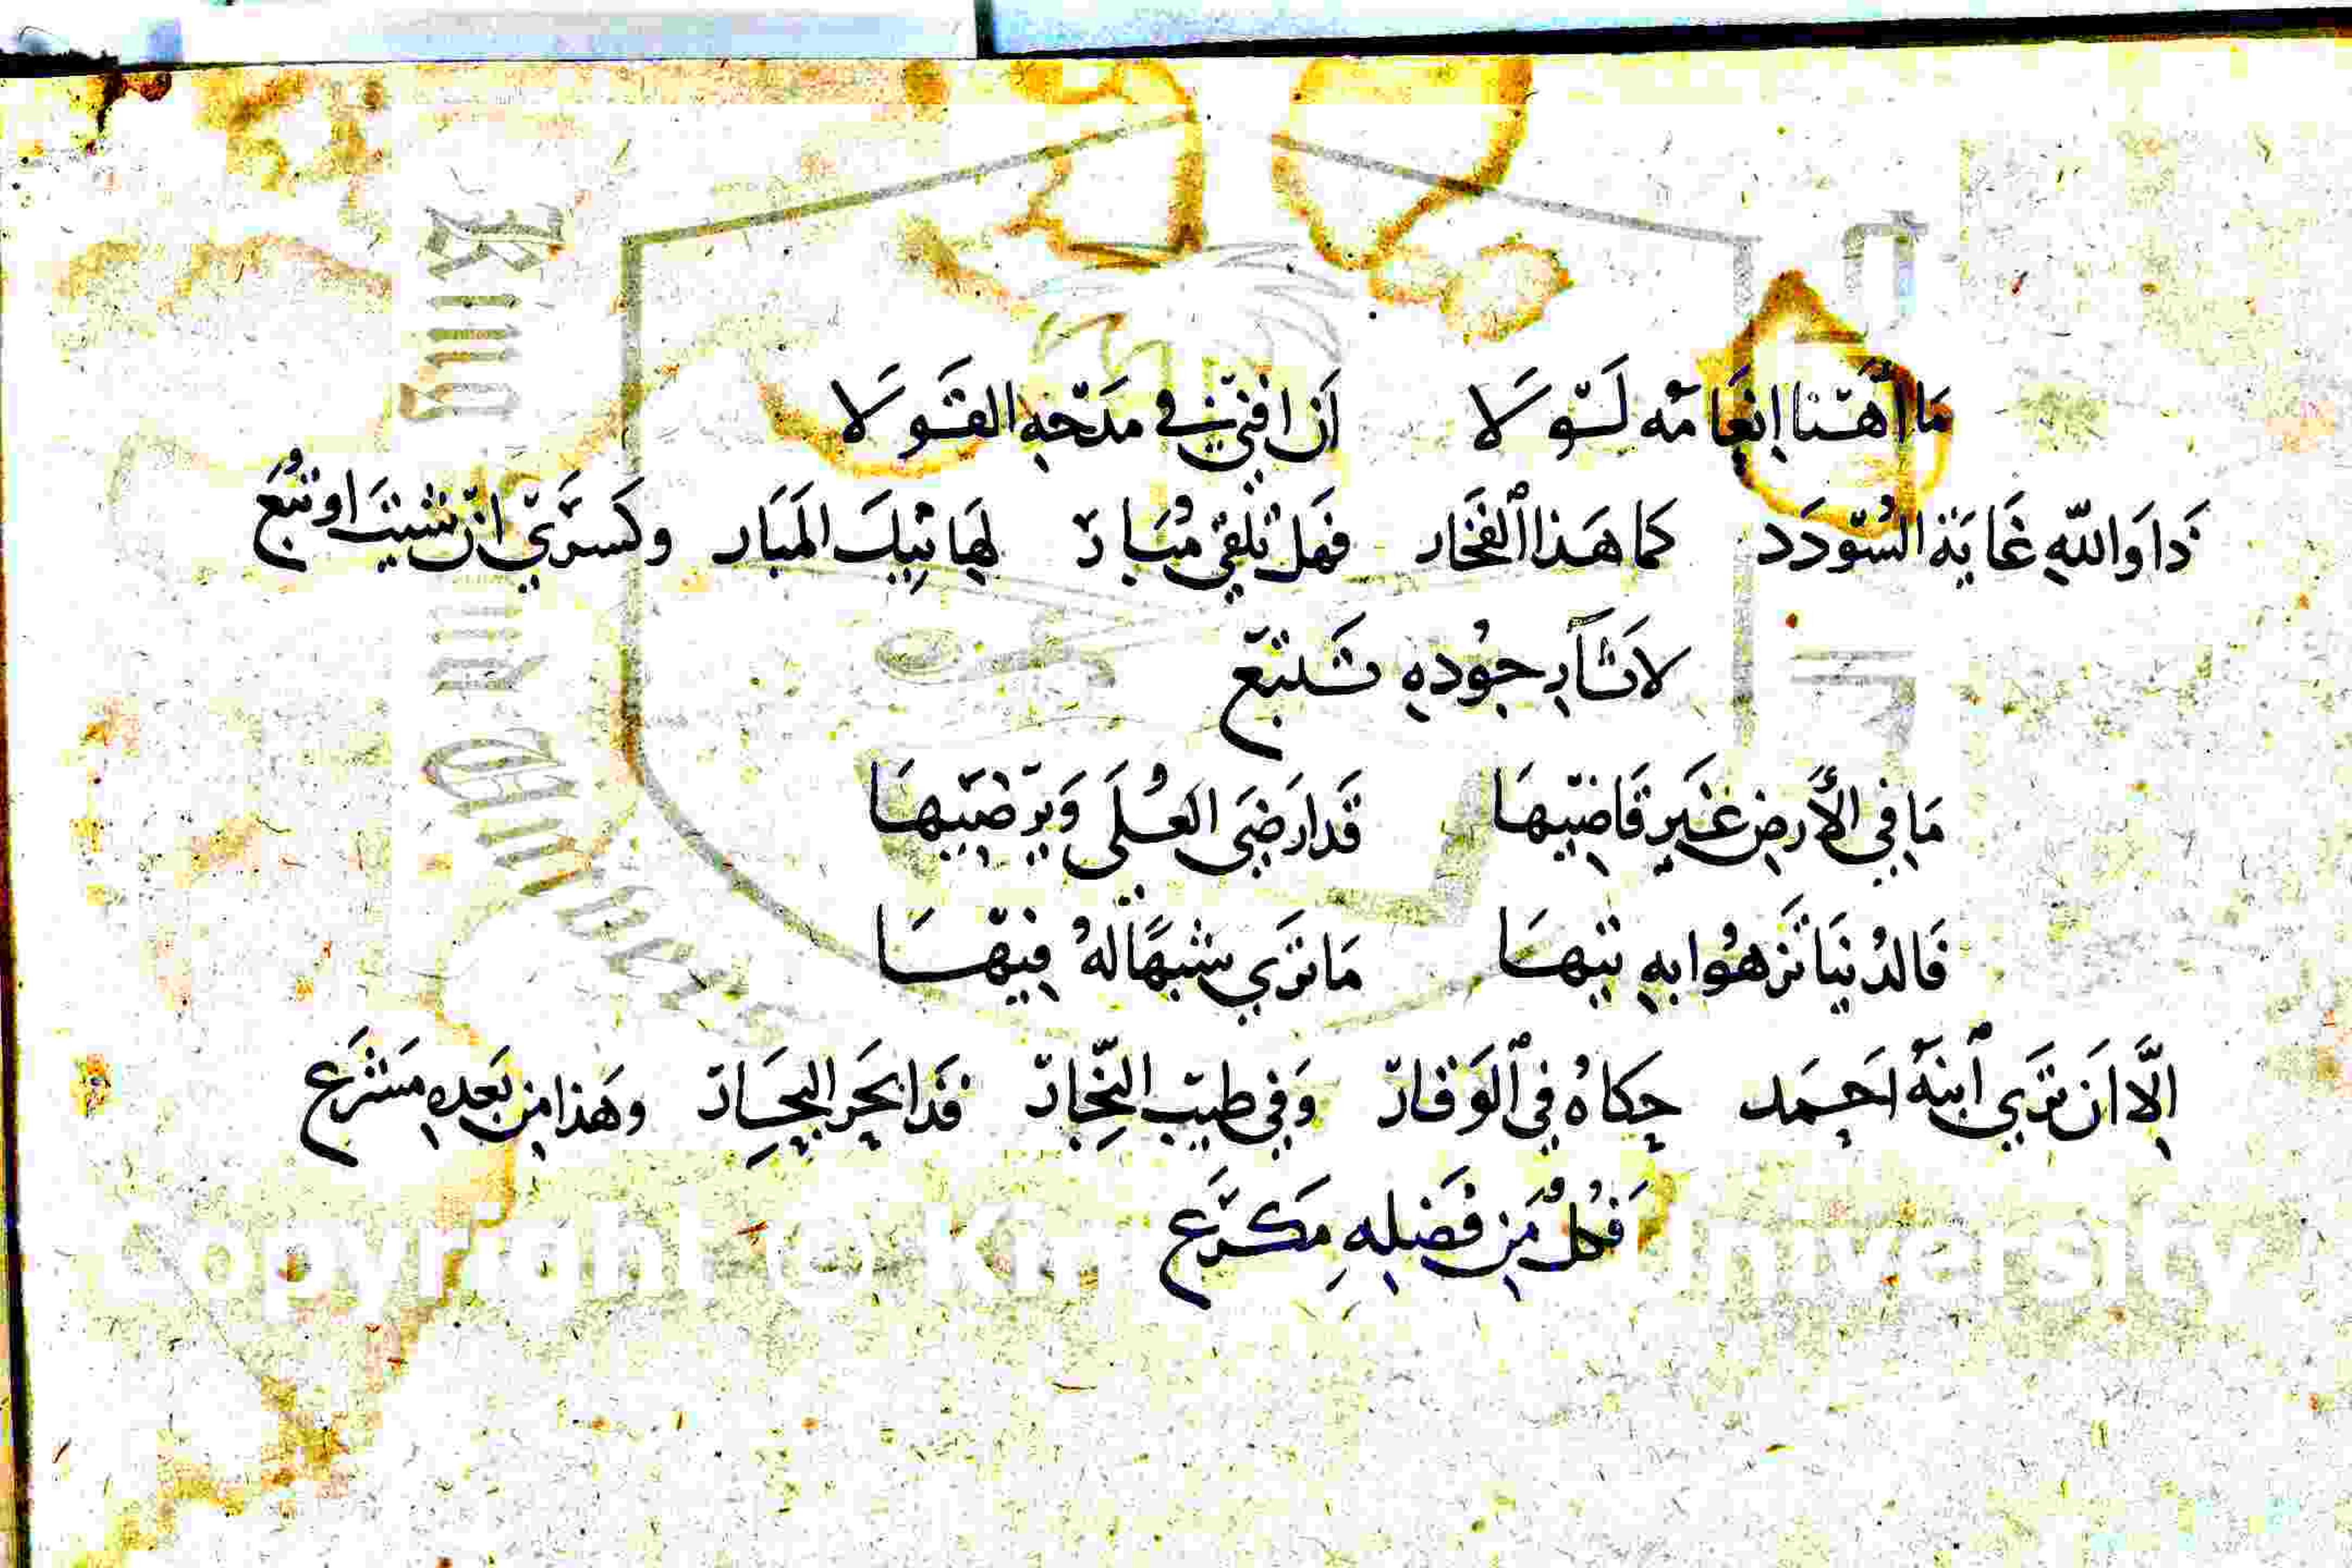 مَا أهَنّا إنعَامُه لَسّوَلا أن افنيّ في مَدحِهِ القَوَلا
دَا وَاللّهِ غَايَة السُّودَد كما هَذا الفَخَار فهَل تلقي مُبَارّ لهَاتِيكَ المَبَار وكَسرَيّ ان شيتَ او تُبّع
لاَثآرِ جُودهِ تَتبَع
مَا فِي الأرضِ غَيرِ قَاضيهَا قَد ارَضَى العُلَى وَيرضيهَا
فَالدُنيَا تَزهُوا بهِ تيهَا مَا تَرَي شبهًا لهُ فِيهَا
إلَّا أن تَرَي ابنَهُ أحمَد حِكاهُ فِي الوَقارّ وَفِي طيب النّجِارّ قَد ابحَر البِحَارّ وهَذا مِن بَعدِهِ مَشرَع
فَكُلٌ مَن فَضلِهِ مَكرَع
King Saud University
Copyright © King Saud University